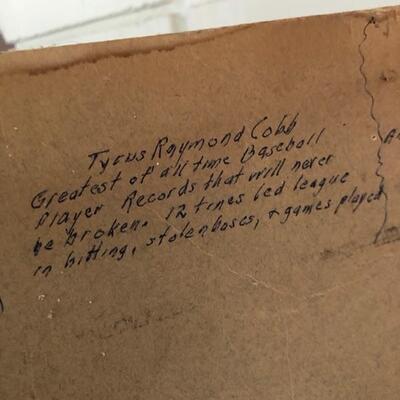 Tyrus Raymond Cobb
Greatest of all time Baseball
Player Records that will never
be broken. 12 times led league
in hitting, stolen bases, & games played